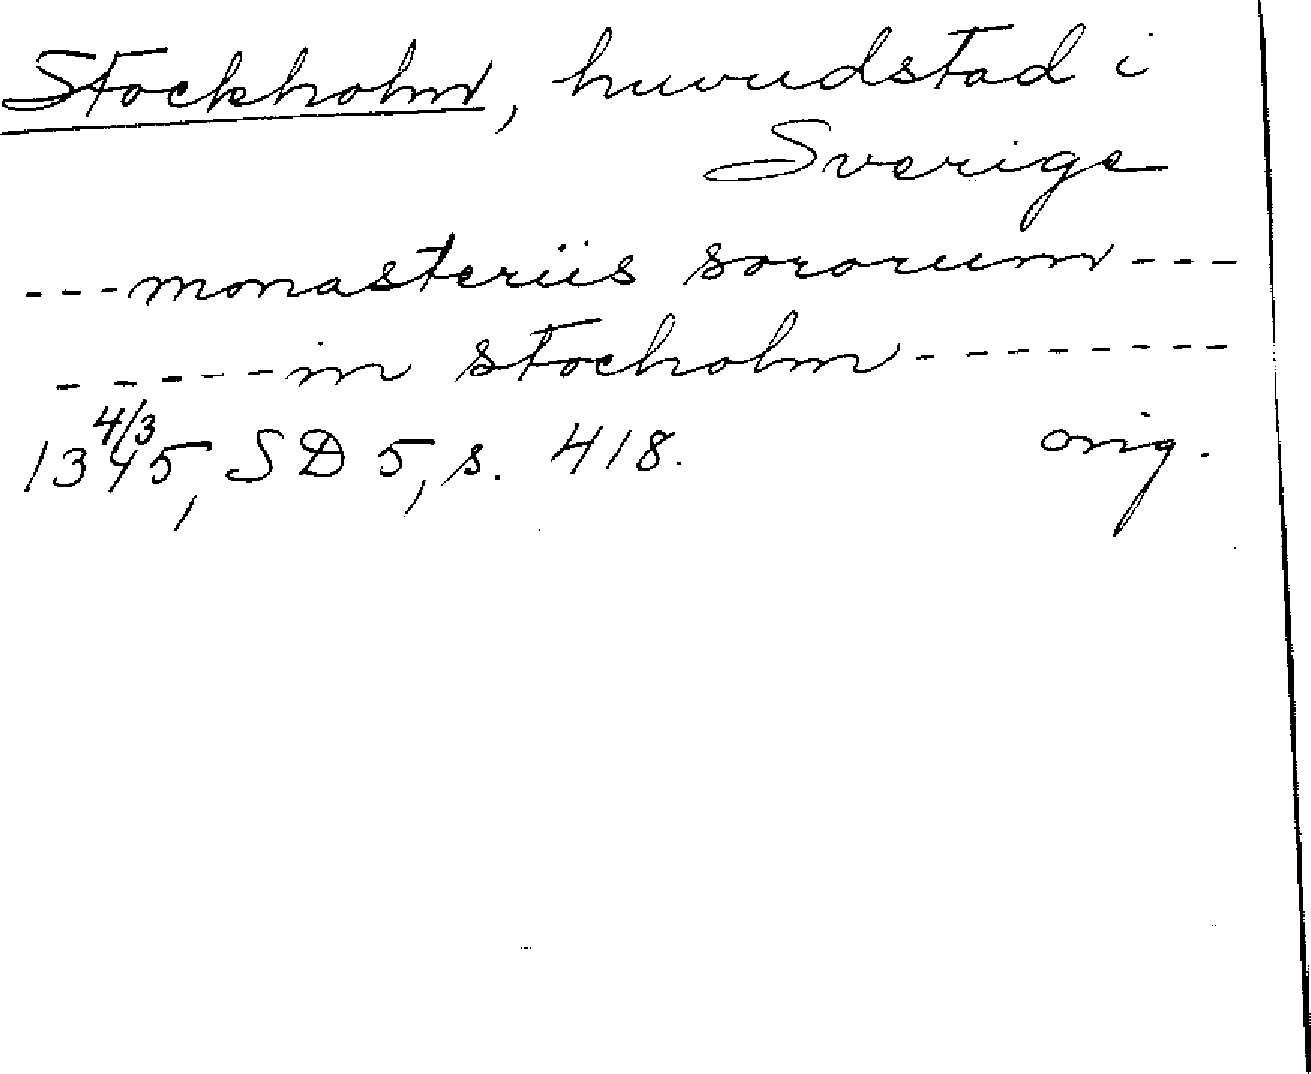 Stockholm, huvudstad i
Sverige
---monasteriis sororum---
-----in stocholm--------
4/3
1345, SD 5, s. 418. orig.